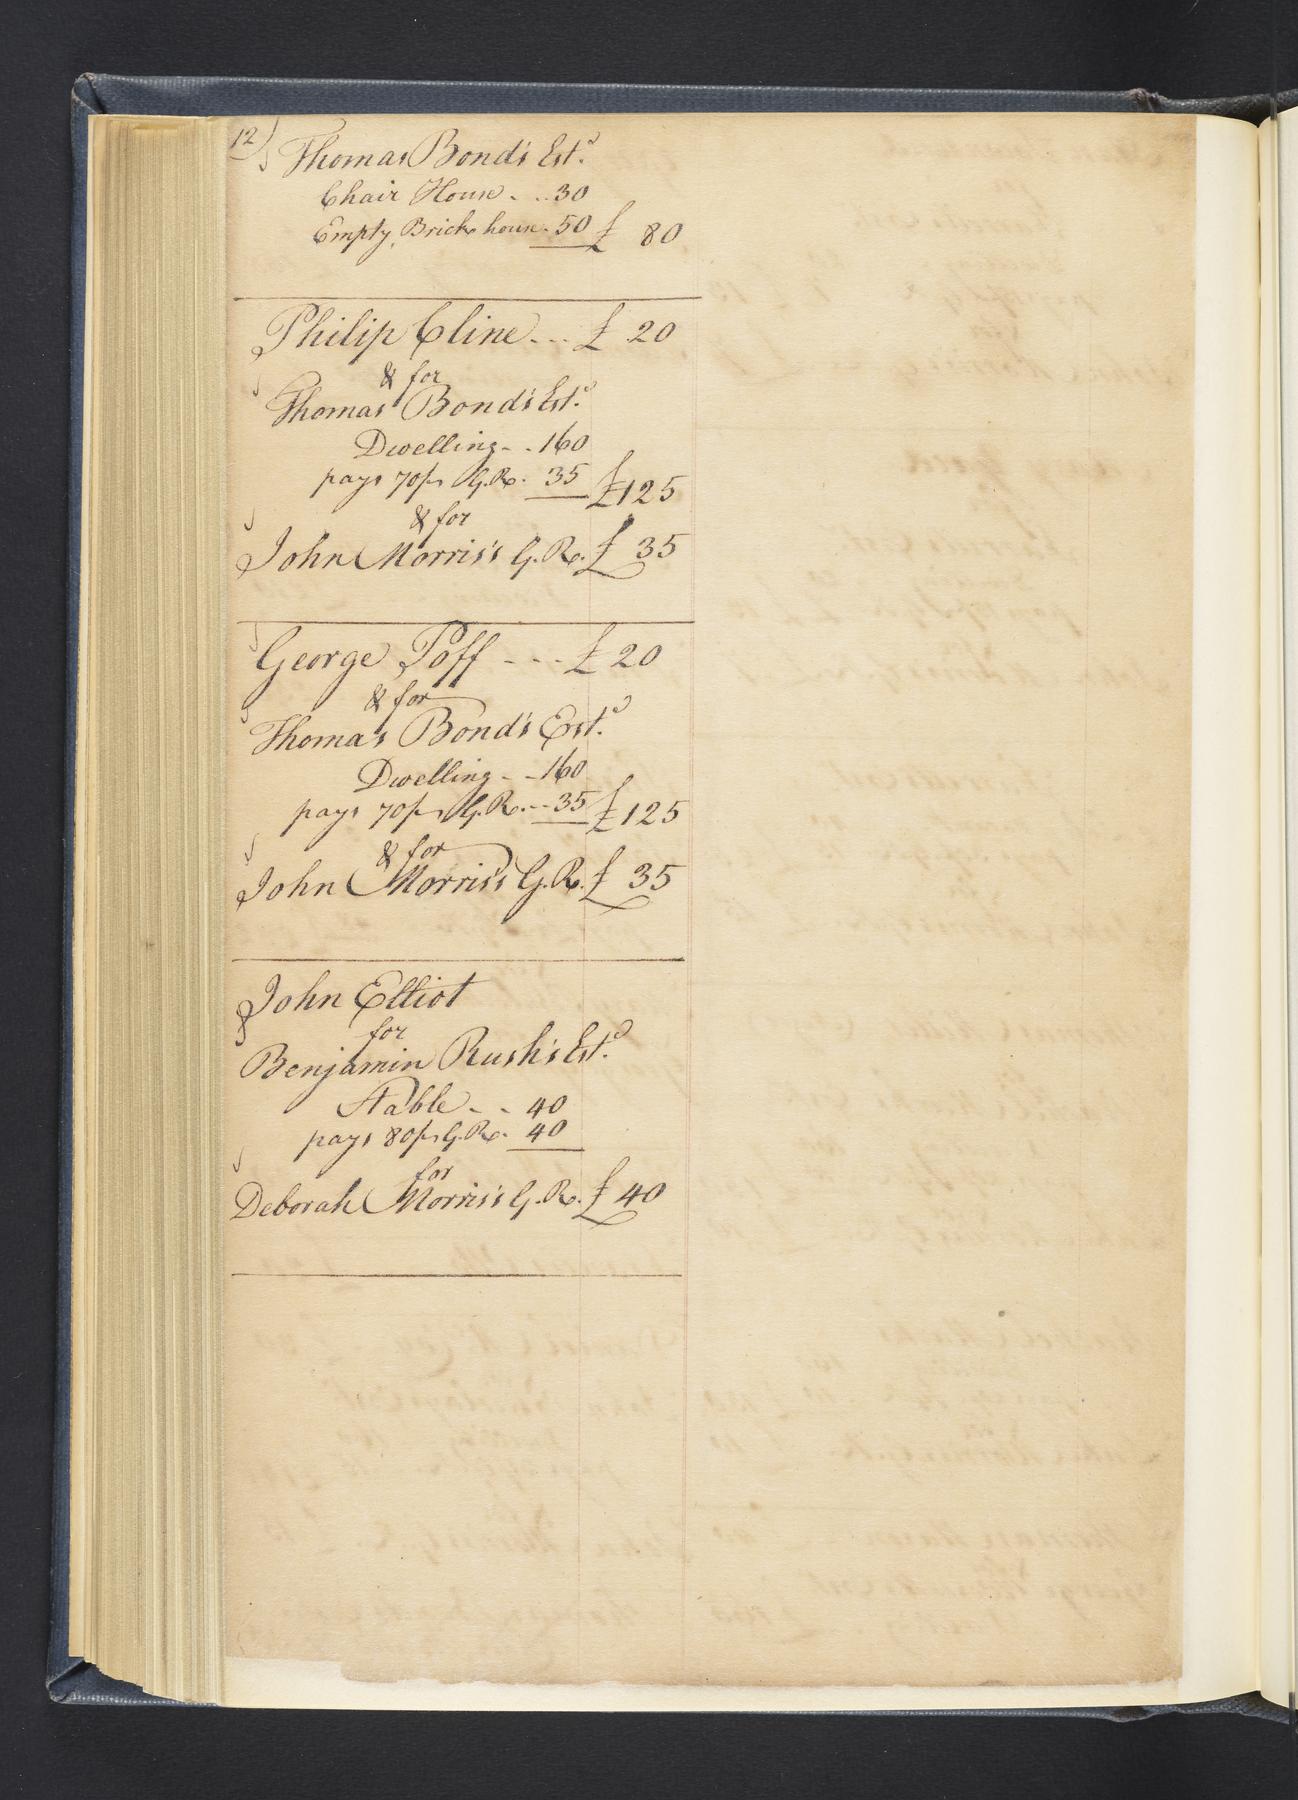 12)
Thomas Bond's Est.ᵈ
Chair House - .. 30
Empty Brick house - 50 £ 80
Philip Cline - .. £ 20
& for
Thomas Bond's Est.ᵈ
Dwelling - - 160
pays 70/- G. R. 35 £125
& for
John Morris's G. R. £ 35
George Poff - - - £ 20
& for
Thomas Bond's Est.ᵈ
Dwelling - - 160
pays 70/- G. R. - - 35 £125
& for
John Morris's G. R. £ 35
John Elliot
for
Benjamin Rush's Est.ᵈ
Stable - - 40
pays 80/- G. R. 40
for
Deborah Morris's G. R. £ 40